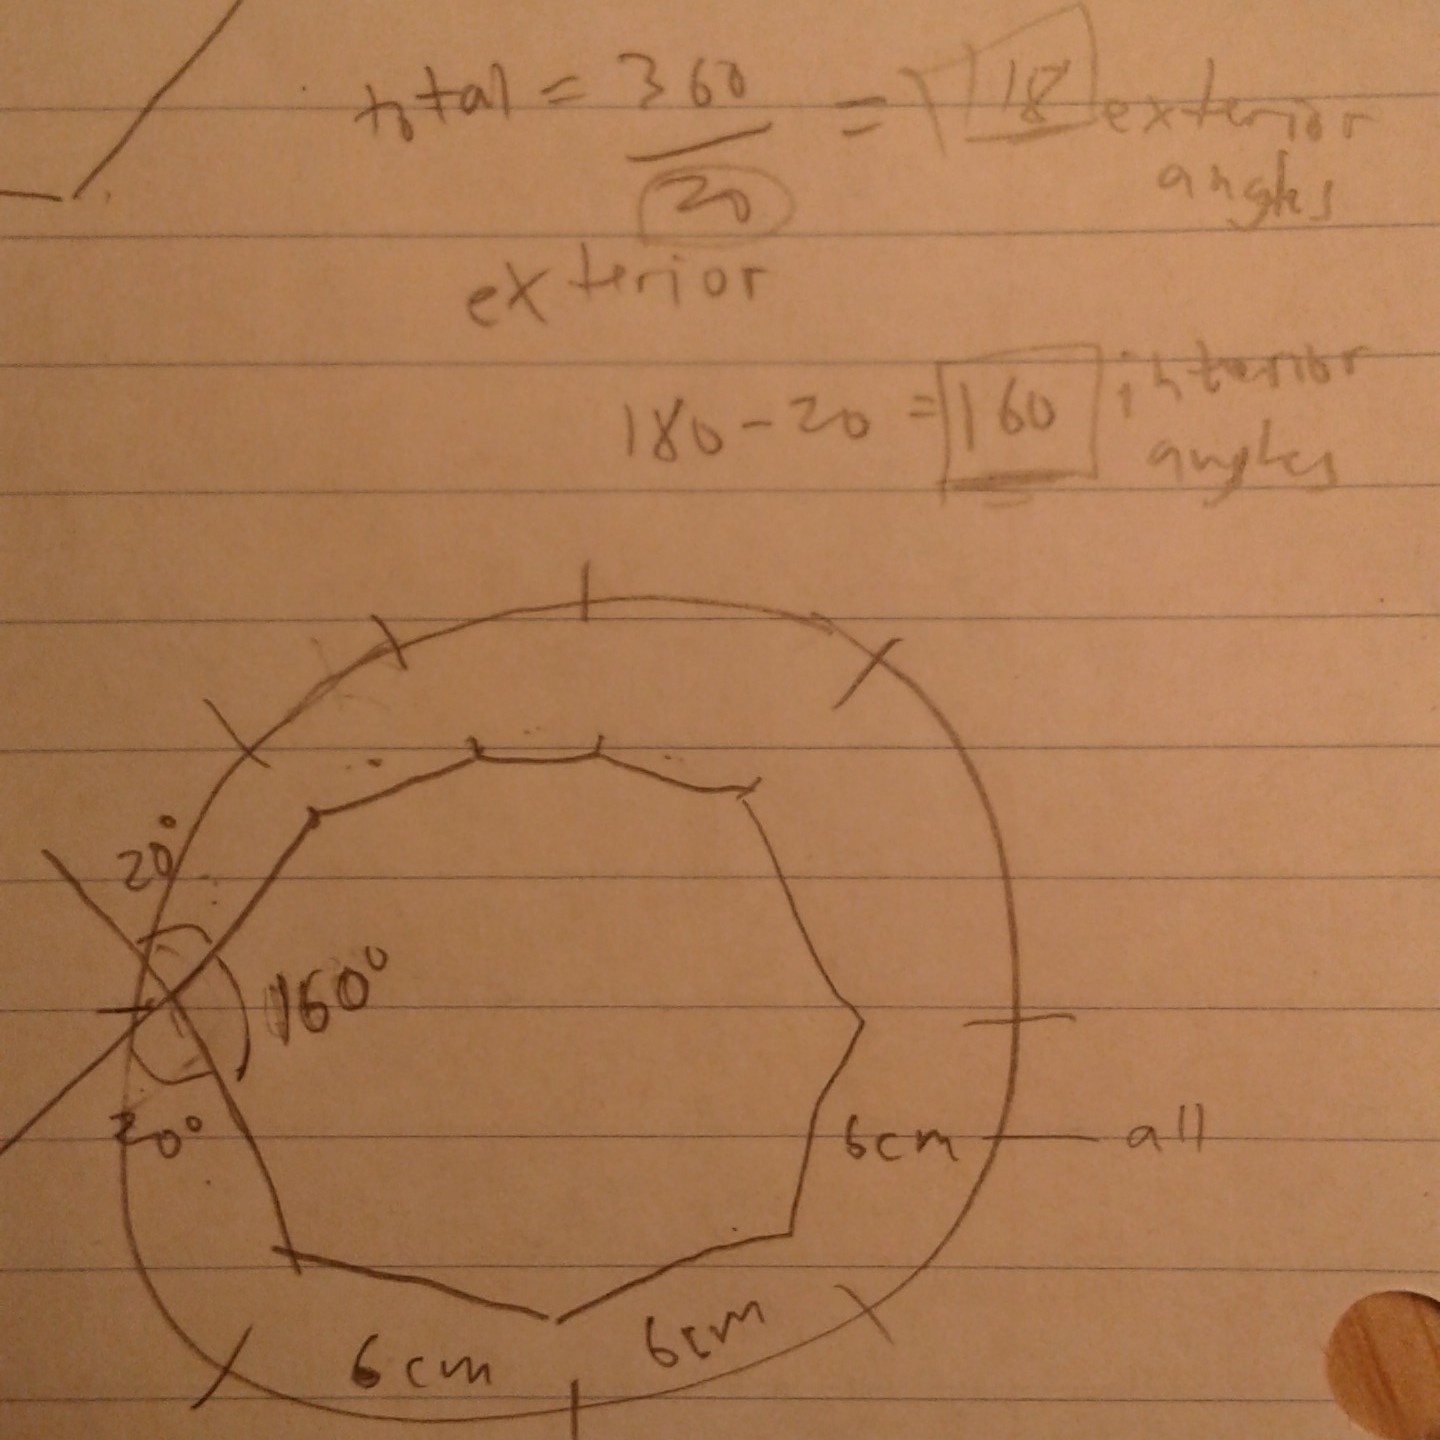 total = 360 = 18 exterior
20 angles
exterior
180 - 20 = 160 interior
angles
20°
160°
20°
6cm — all
6cm
6cm